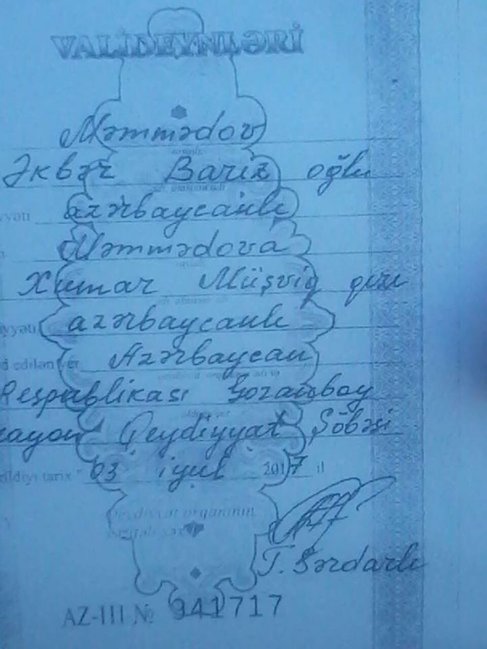 VALİDEYNLƏRİ
Məmmədov
Əkbər Bariz oğlu
azərbaycanlı
Məmmədova
Xumar Müşviq qızı
yyəti azərbaycanlı
d edilən yer Azərbaycan
Respublikası Goranboy
rayon Qeydiyyat Şöbəsi
rildiyi tarix "03 iyul 2017 il
Qeydiyyat orqanının
T. Sərdarlı
AZ-III № 941717